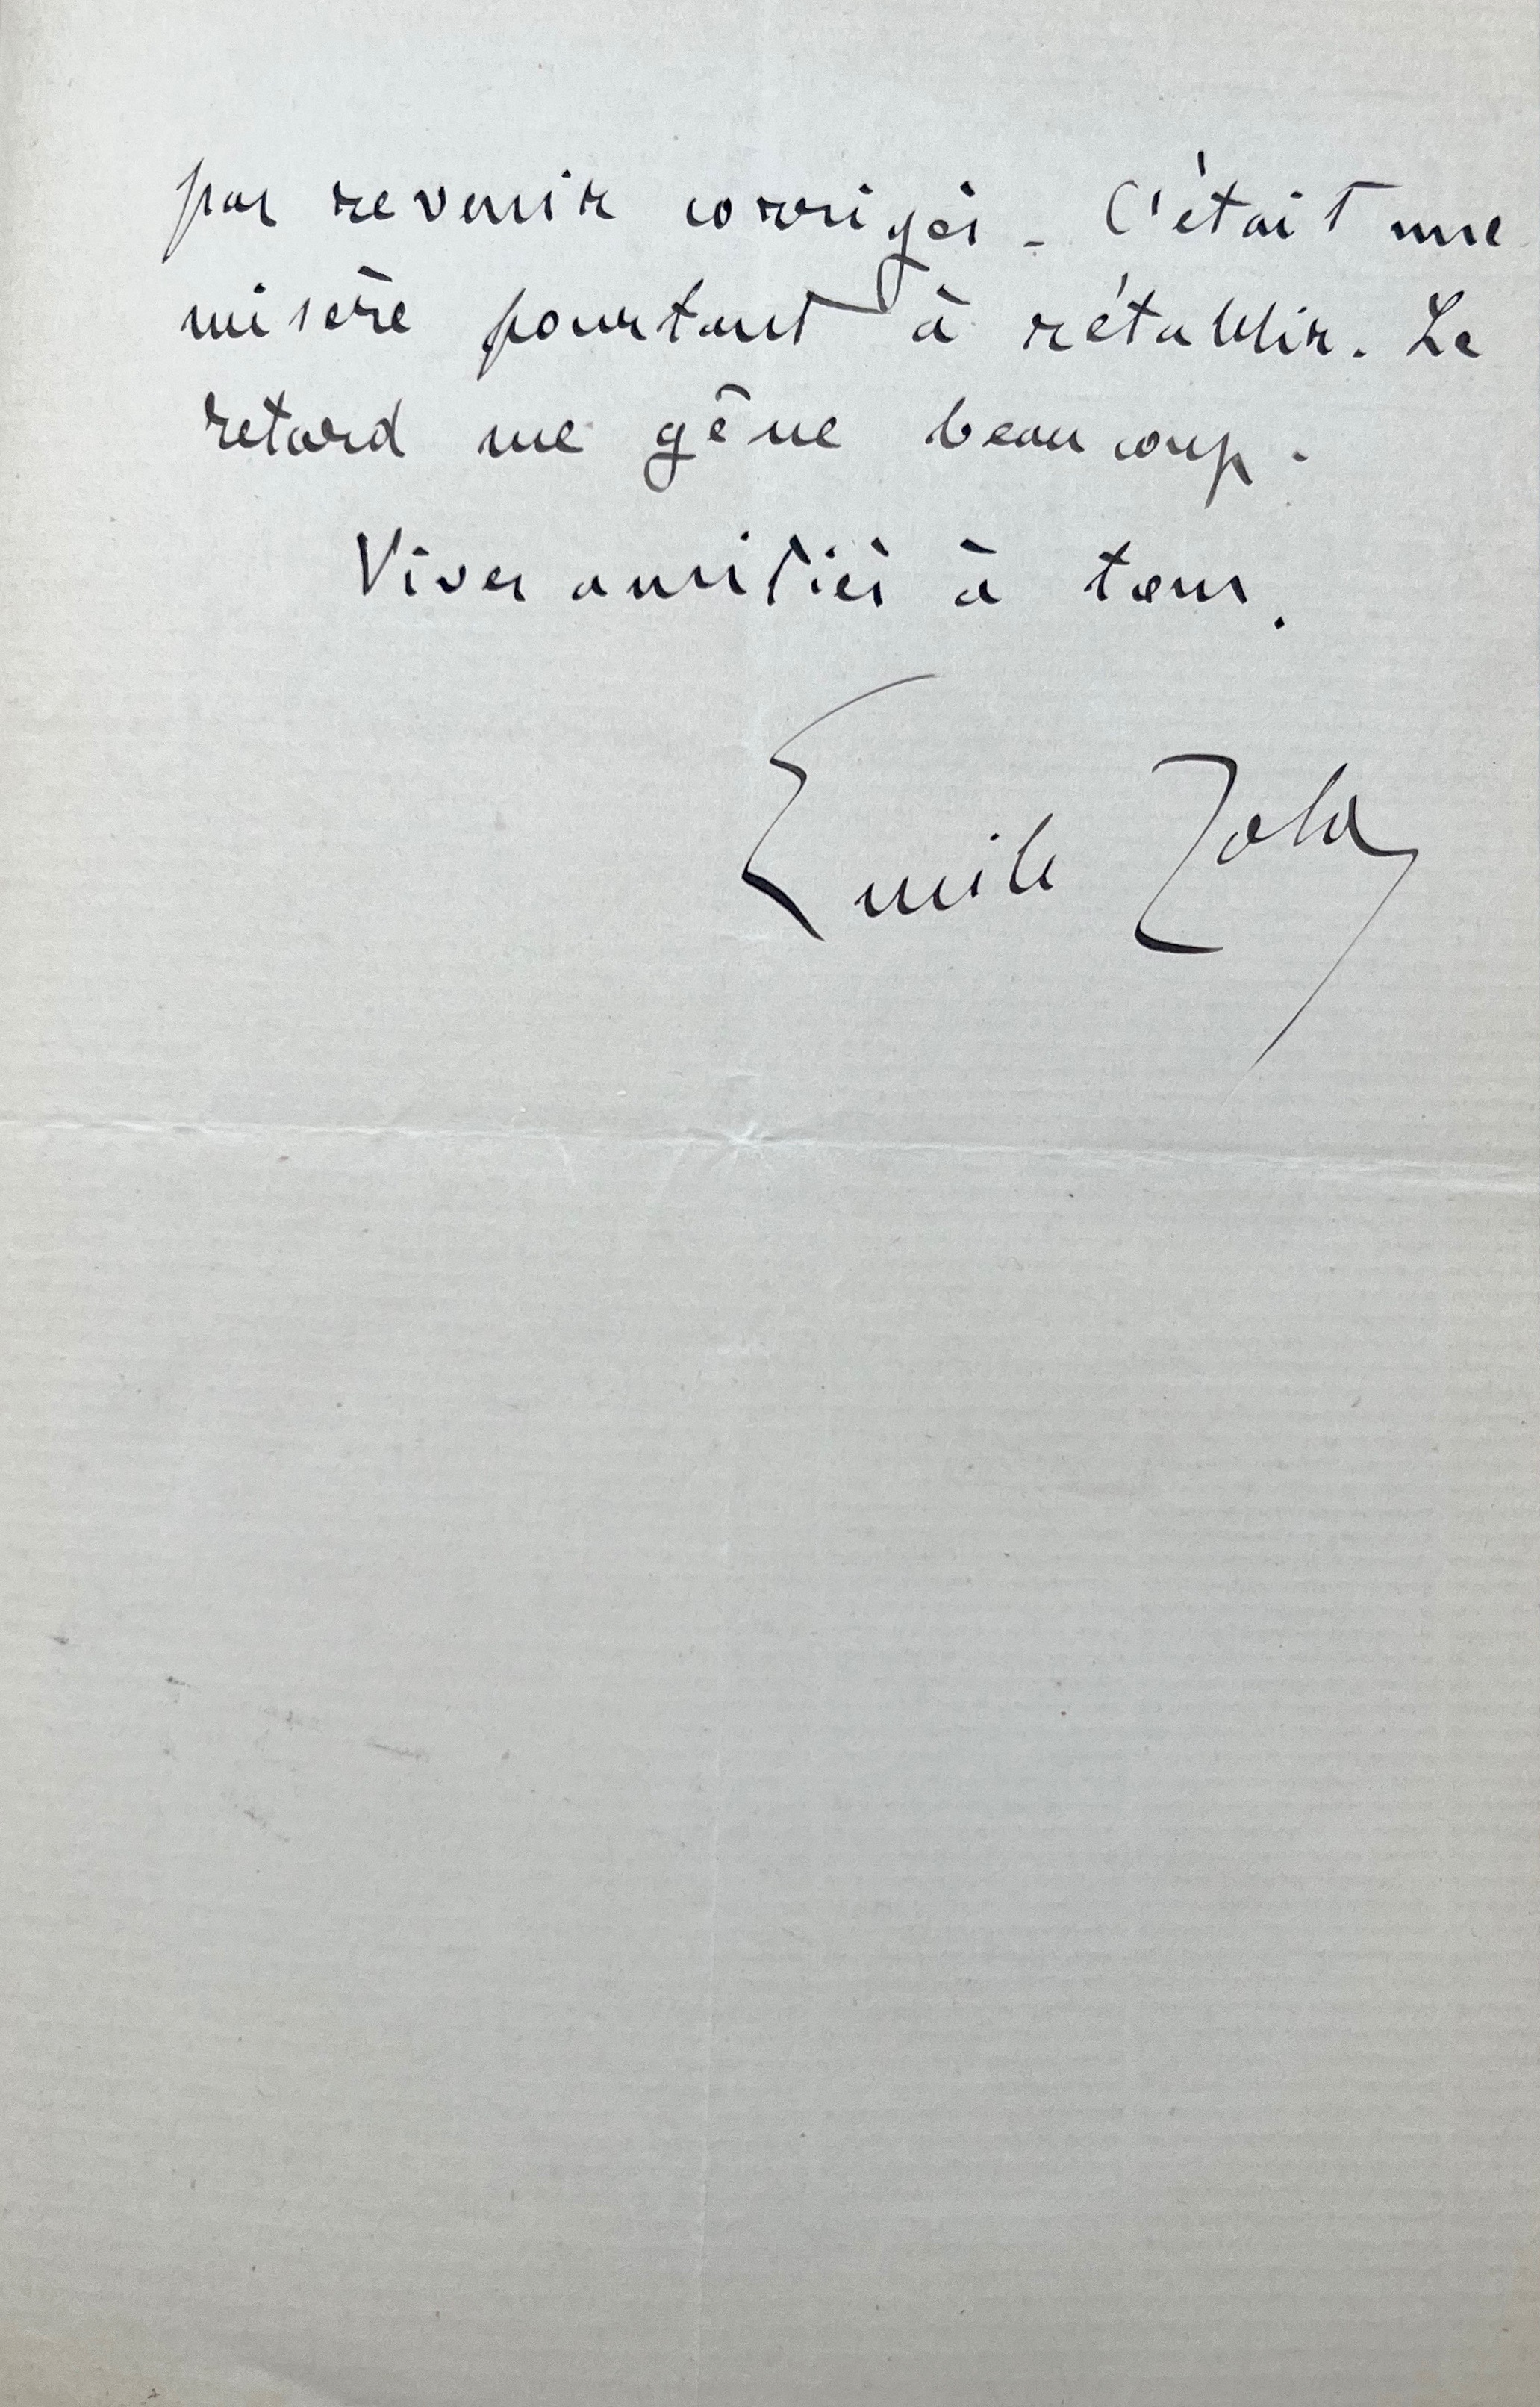 pas revenir corrigés. C'était une
misère pourtant à rétablir. Le
retard me gêne beaucoup.
Vives amitiés à tous.
Emile Zola